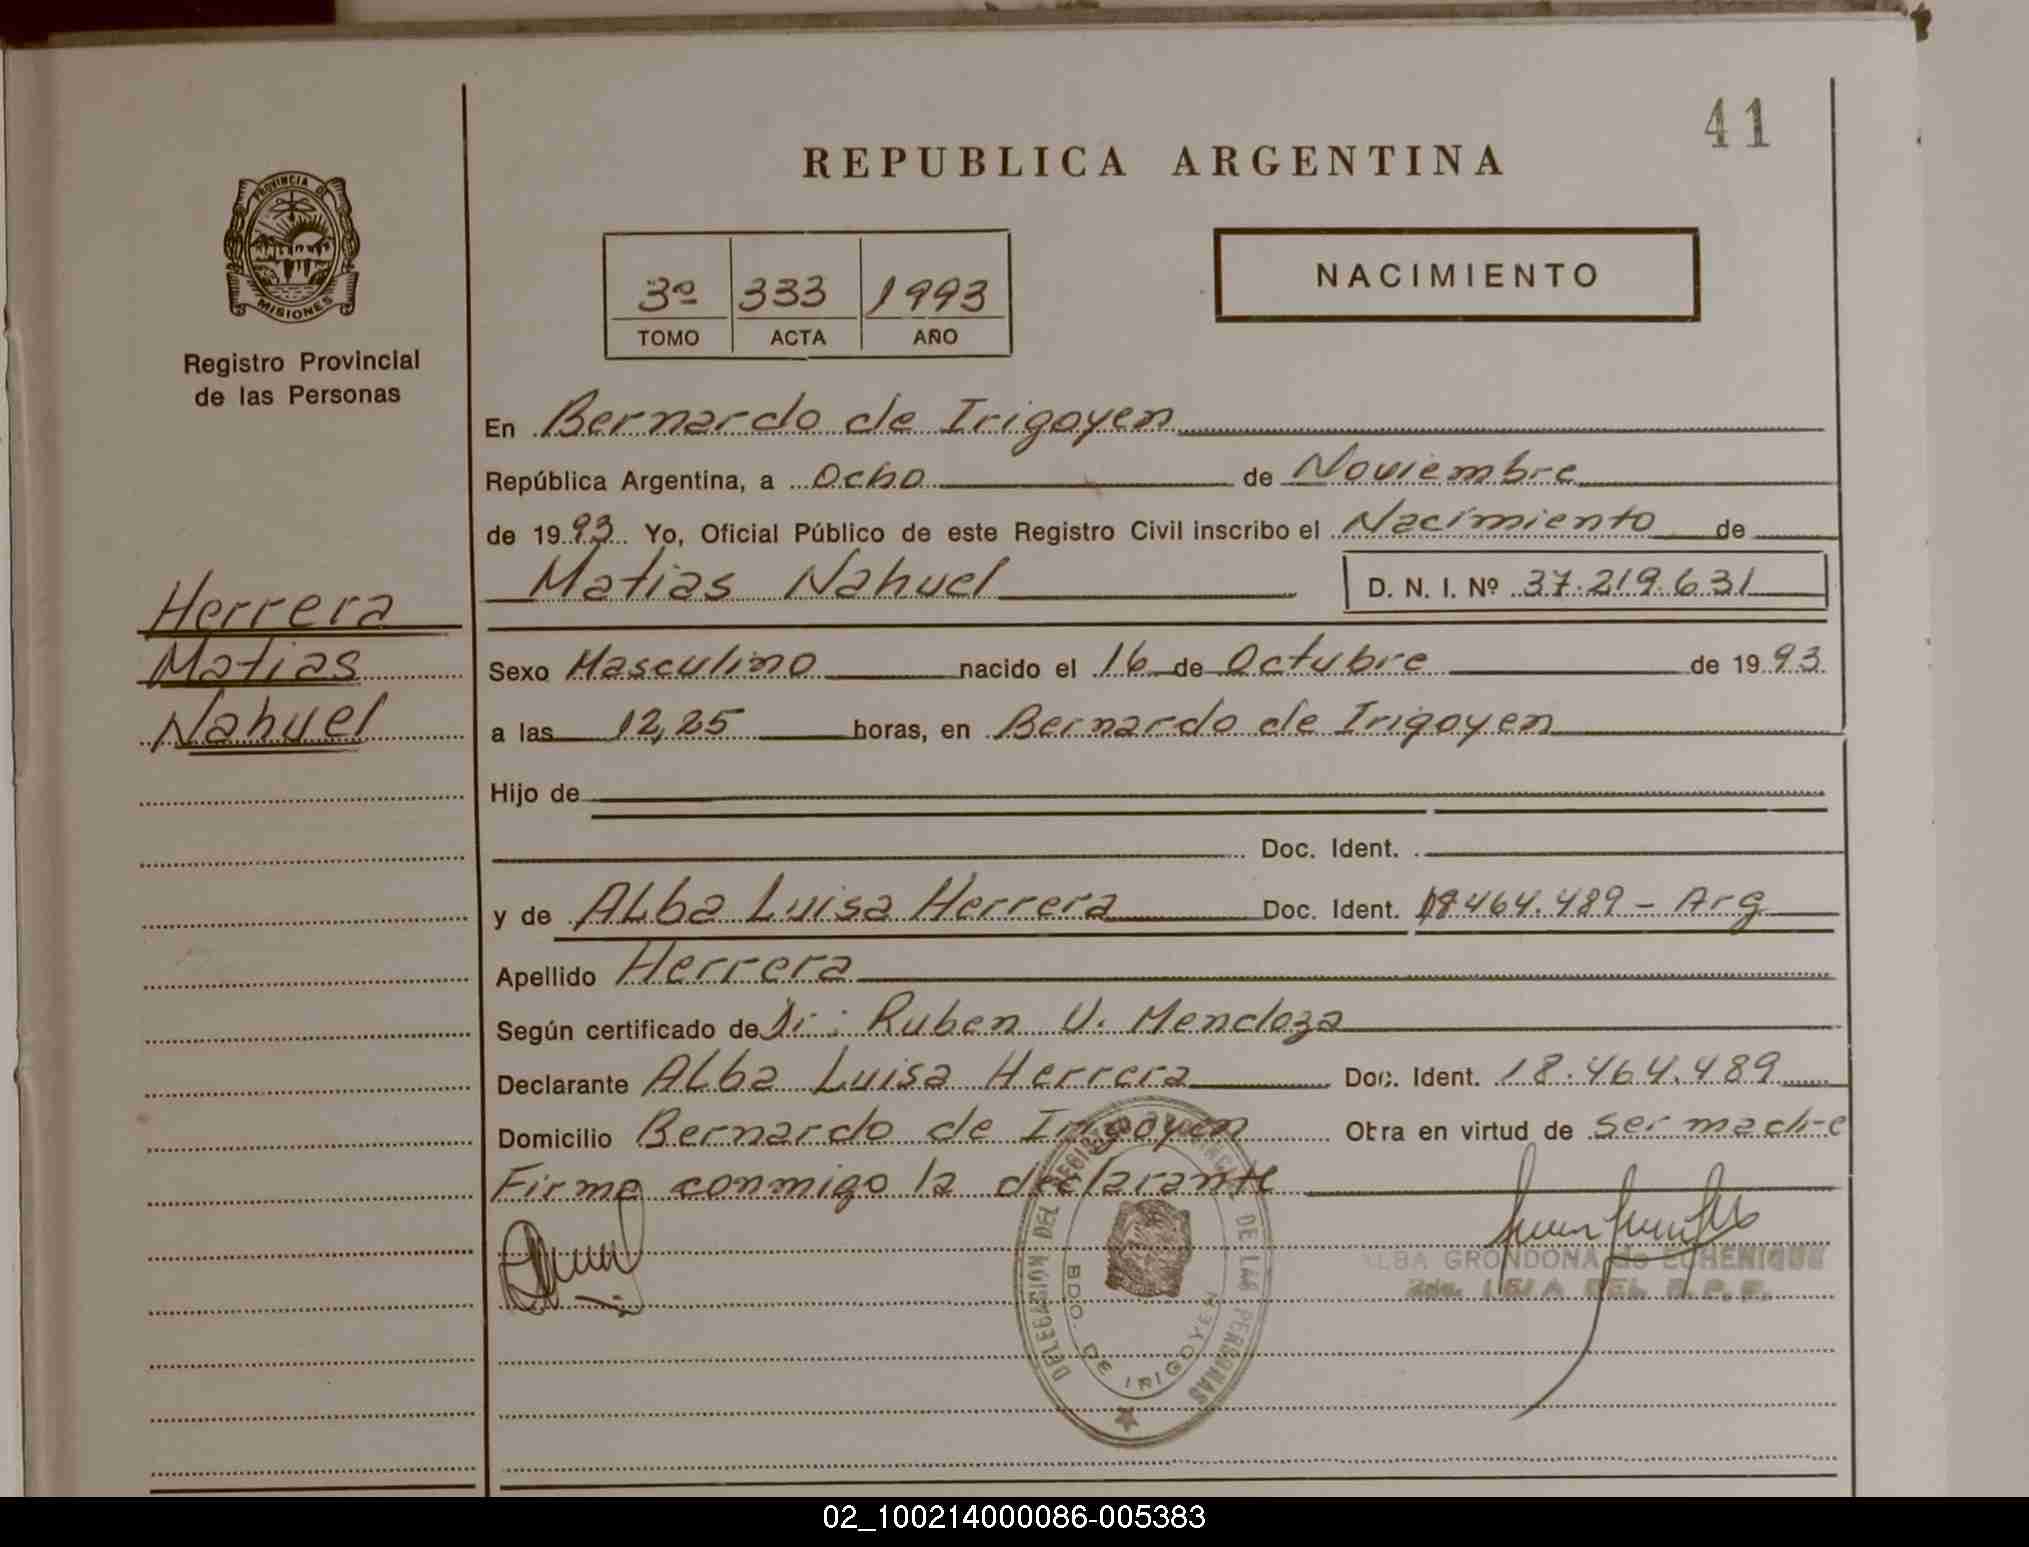 41
REPUBLICA ARGENTINA
PROVINCIA DE
MISIONES
Registro Provincial
de las Personas
3º 333 1993
TOMO ACTA AÑO
NACIMIENTO
En Bernardo de Irigoyen
República Argentina, a Ocho de Noviembre
de 1993 Yo, Oficial Público de este Registro Civil inscribo el Nacimiento de
Matias Nahuel D. N. I. Nº 37.219.631
Herrera
Matias
Nahuel
Sexo Masculino nacido el 16 de Octubre de 1993
a las 12,25 horas, en Bernardo de Irigoyen
Hijo de
Doc. Ident.
y de Alba Luisa Herrera Doc. Ident. 18.464.489 - Arg
Apellido Herrera
Según certificado de Dr: Ruben V. Mendoza
Declarante Alba Luisa Herrera Doc. Ident. 18.464.489
Domicilio Bernardo de Irigoyen Obra en virtud de ser madre
Firma conmigo la declarante
DELEGACION DEL REGISTRO PROVINCIAL DE LAS PERSONAS
BDO. DE IRIGOYEN
ALBA GRONDONA de ECHENIQUE
DEL R. P. P.
02_100214000086-005383